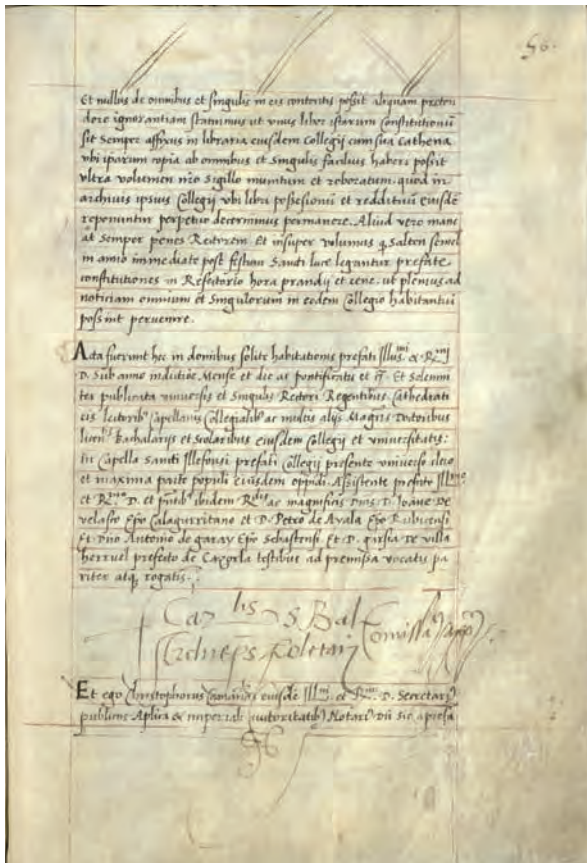 56.
Et nullus de omnibus et singulis in eis contentis possit aliquam preten
dere ignorantiam statuimus ut unus liber istarum constitutionũ
sit semper affixus in libraria eiusdem Collegij cum sua Cathena
vbi ipsarum copia ab omnibus et singulis facilius haberi possit
vltra volumen nr̃o sigillo munitum et roboratum. quod in
archiuis ipsius Collegij vbi libri possesionũ et reddituũ eiusdẽ
reponuntur perpetuo decernimus permanere. Aliud vero mane
at semper penes Rectorem. Et insuper volumus q̃ saltem semel
in anno immediate post festum Sancti luce legantur prefate
constitutiones in Refectorio hora prandij et cene. ut plenius ad
noticiam omnium et singulorum in eodem Collegio habitantiũ
possint peruenire.
Acta fuerunt hec in domibus solite habitationis prefati Illus.mi et R.mi
D. Sub anno indictiõe Mense et die ac pontificatu et cẽ. Et Solemni
ter publicata vniuersis et singulis Rectori Regentibus Cathedrati
cis lectorib' Capellanis Collegialib' ac multis alijs Magr̃is Doctoribus
licen.tis Bachalarijs et Scolaribus eiusdem Collegij et vniuersitatis:
In Capella Sancti Illefonsi prefati Collegij presente vniuerso clero
et maxima parte populi eiusdem oppidi. Assistente prefato Ill.mo
et R.mo D. et p̃ntib' ibidem R.dis ac magnificis Dnĩs. D. Joane De
velasco Ep̃o Calagurritano et D. Petro de Ayala Ep̃o
Et Dño Antonio de garay Ep̃o Et D. garsia De villa
herruel prefecto de Caçorla testibus ad premissa vocatis pa
riter atq̃ rogatis.
Car lis S. Bal
Archiep̃s Toletan
Et ego Christophorus eiusdẽ Ill.mi et R.mi D. Secretari'
publicus Aplica et imperiali auctoritatib' Notari' Dũ sic a prefa